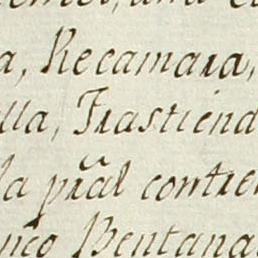 a, Recamara,
lla, Trastiend
la prãl contie
nco Bentana